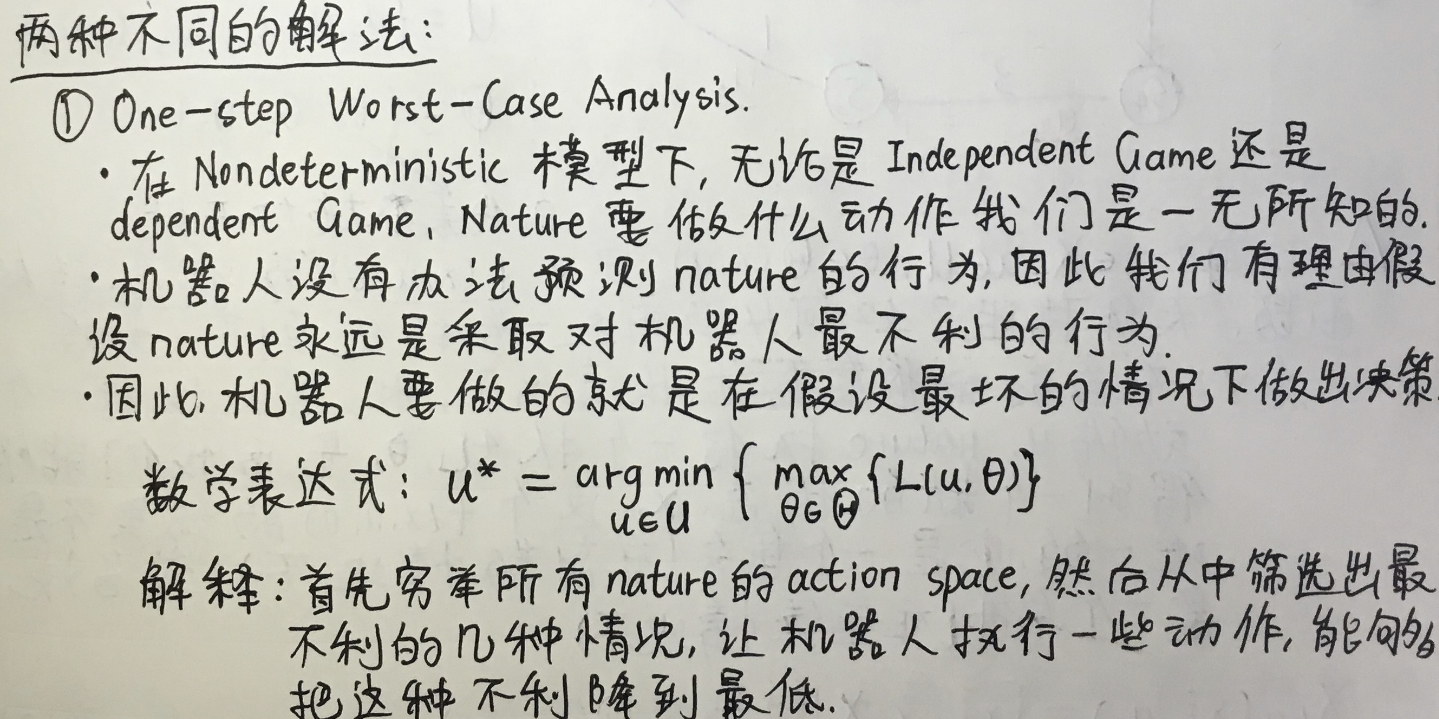 两种不同的解法:
① One-step Worst-Case Analysis.
· 在 Nondeterministic 模型下, 无论是 Independent Game 还是
dependent Game, Nature 要做什么动作我们是一无所知的.
· 机器人没有办法预测 nature 的行为, 因此我们有理由假
设 nature 永远是采取对机器人最不利的行为.
· 因此, 机器人要做的就是在假设最坏的情况下做出决策.
数学表达式: u* = arg min { max {L(u, θ)}
u∈U θ∈Θ
解释: 首先穷举所有 nature 的 action space, 然后从中筛选出最
不利的几种情况, 让机器人执行一些动作, 能够的
把这种不利降到最低.